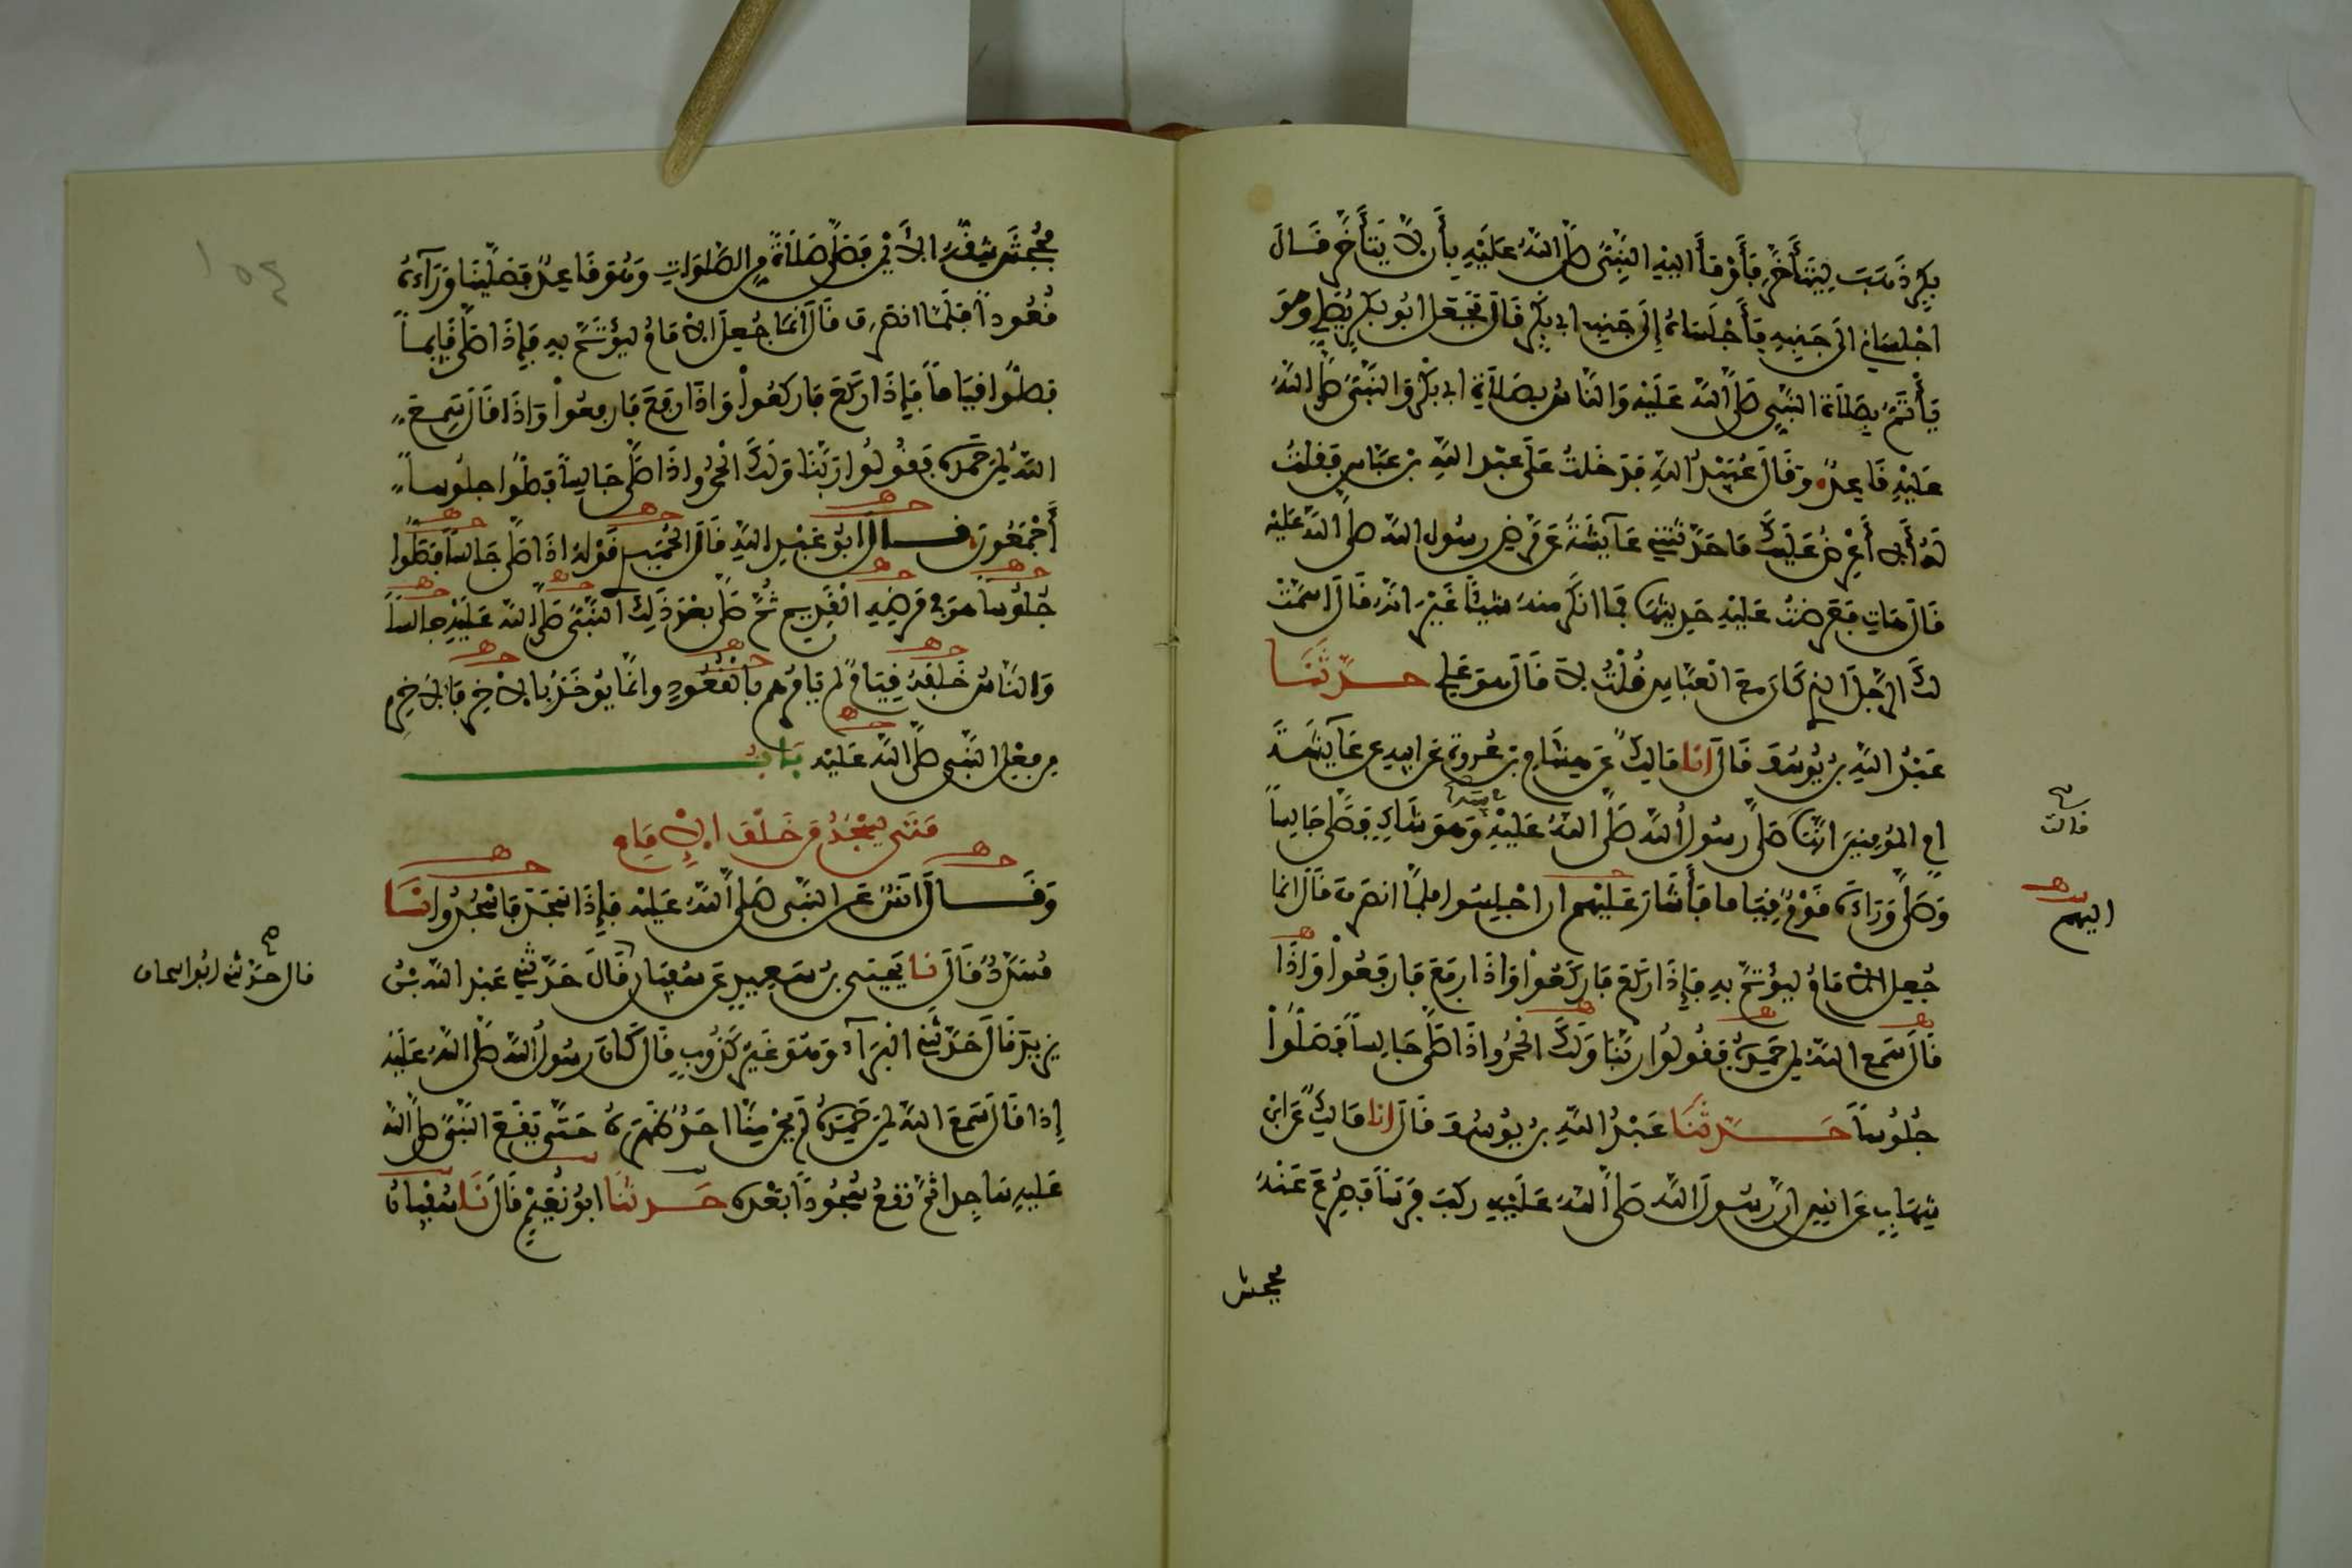 بكر ذهب ليتأخر فأومأ إليه النبي صلى الله عليه بأن لا يتأخر فقال
اجلساني إلى جنبه فأجلساه إلى جنب أبي بكر قال فجعل أبو بكر يصلي وهو
يأتم بصلاة النبي صلى الله عليه والناس بصلاة أبي بكر والنبي صلى الله
عليه قاعد وقال عبيد الله فدخلت على عبد الله بن عباس فقلت
له ألا أعرض عليك ما حدثتني عائشة عن مرض رسول الله صلى الله عليه
قال هات فعرضت عليه حديثها فما أنكر منه شيئا غير أنه قال أسمت
لك الرجل الذي كان مع العباس قلت لا قال هو علي حدثنا
عبد الله بن يوسف قال أنا مالك عن هشام بن عروة عن أبيه عن عائشة
أم المؤمنين أنها صلى رسول الله صلى الله عليه في بيته وهو شاك فصلى جالسا
قالت
وصلى وراءه قوم قياما فأشار عليهم أن اجلسوا فلما انصرف قال إنما
إليهم
جعل الإمام ليؤتم به فإذا ركع فاركعوا وإذا رفع فارفعوا وإذا
قال سمع الله لمن حمده فقولوا ربنا ولك الحمد وإذا صلى جالسا فصلوا
جلوسا حدثنا عبد الله بن يوسف قال أنا مالك عن ابن
شهاب عن أنس أن رسول الله صلى الله عليه ركب فرسا فصرع عنه
فجحش
فجحش شقه الأيمن فصلى صلاة من الصلوات وهو قاعد فصلينا وراءه
قعودا فلما انصرف قال إنما جعل الإمام ليؤتم به فإذا صلى قائما
فصلوا قياما فإذا ركع فاركعوا وإذا رفع فارفعوا وإذا قال سمع
الله لمن حمده فقولوا ربنا ولك الحمد وإذا صلى جالسا فصلوا جلوسا
أجمعون قال أبو عبد الله قال الحميدي قوله إذا صلى جالسا فصلوا
جلوسا هو في مرضه القديم ثم صلى بعد ذلك النبي صلى الله عليه جالسا
والناس خلفه قيام لم يأمرهم بالقعود وإنما يؤخذ بالآخر فالآخر
من فعل النبي صلى الله عليه باب
متى يسجد من خلف الإمام
وقال أنس عن النبي صلى الله عليه فإذا سجد فاسجدوا نا
مسدد قال نا يحيى بن سعيد عن سفيان قال حدثني عبد الله بن
قال حدثني أبو إسحاق
يزيد قال حدثني البراء وهو غير كذوب قال كان رسول الله صلى الله عليه
إذا قال سمع الله لمن حمده لم يحن منا أحد ظهره حتى يقع النبي صلى الله
عليه ساجدا ثم نقع سجودا بعده حدثنا أبو نعيم قال نا سفيان